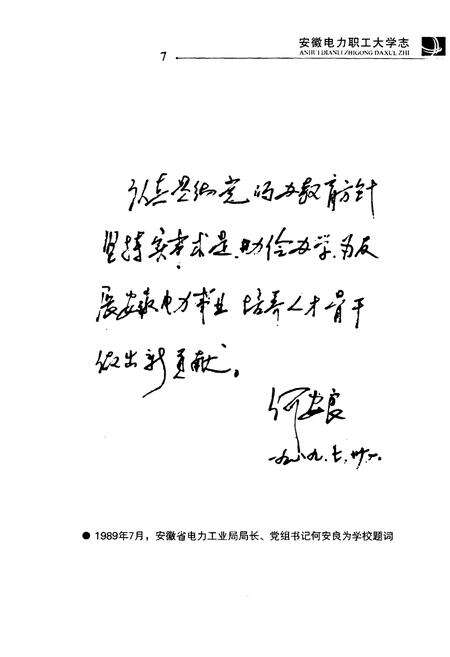 安徽电力职工大学志
ANHUI DIANLI ZHIGONG DAXUE ZHI
7
认真贯彻党的教育方针
坚持实事求是、勤俭办学、为发
展安徽电力事业 培养人才骨干
做出新贡献。
何安良
一九八九.七.
● 1989年7月，安徽省电力工业局局长、党组书记何安良为学校题词